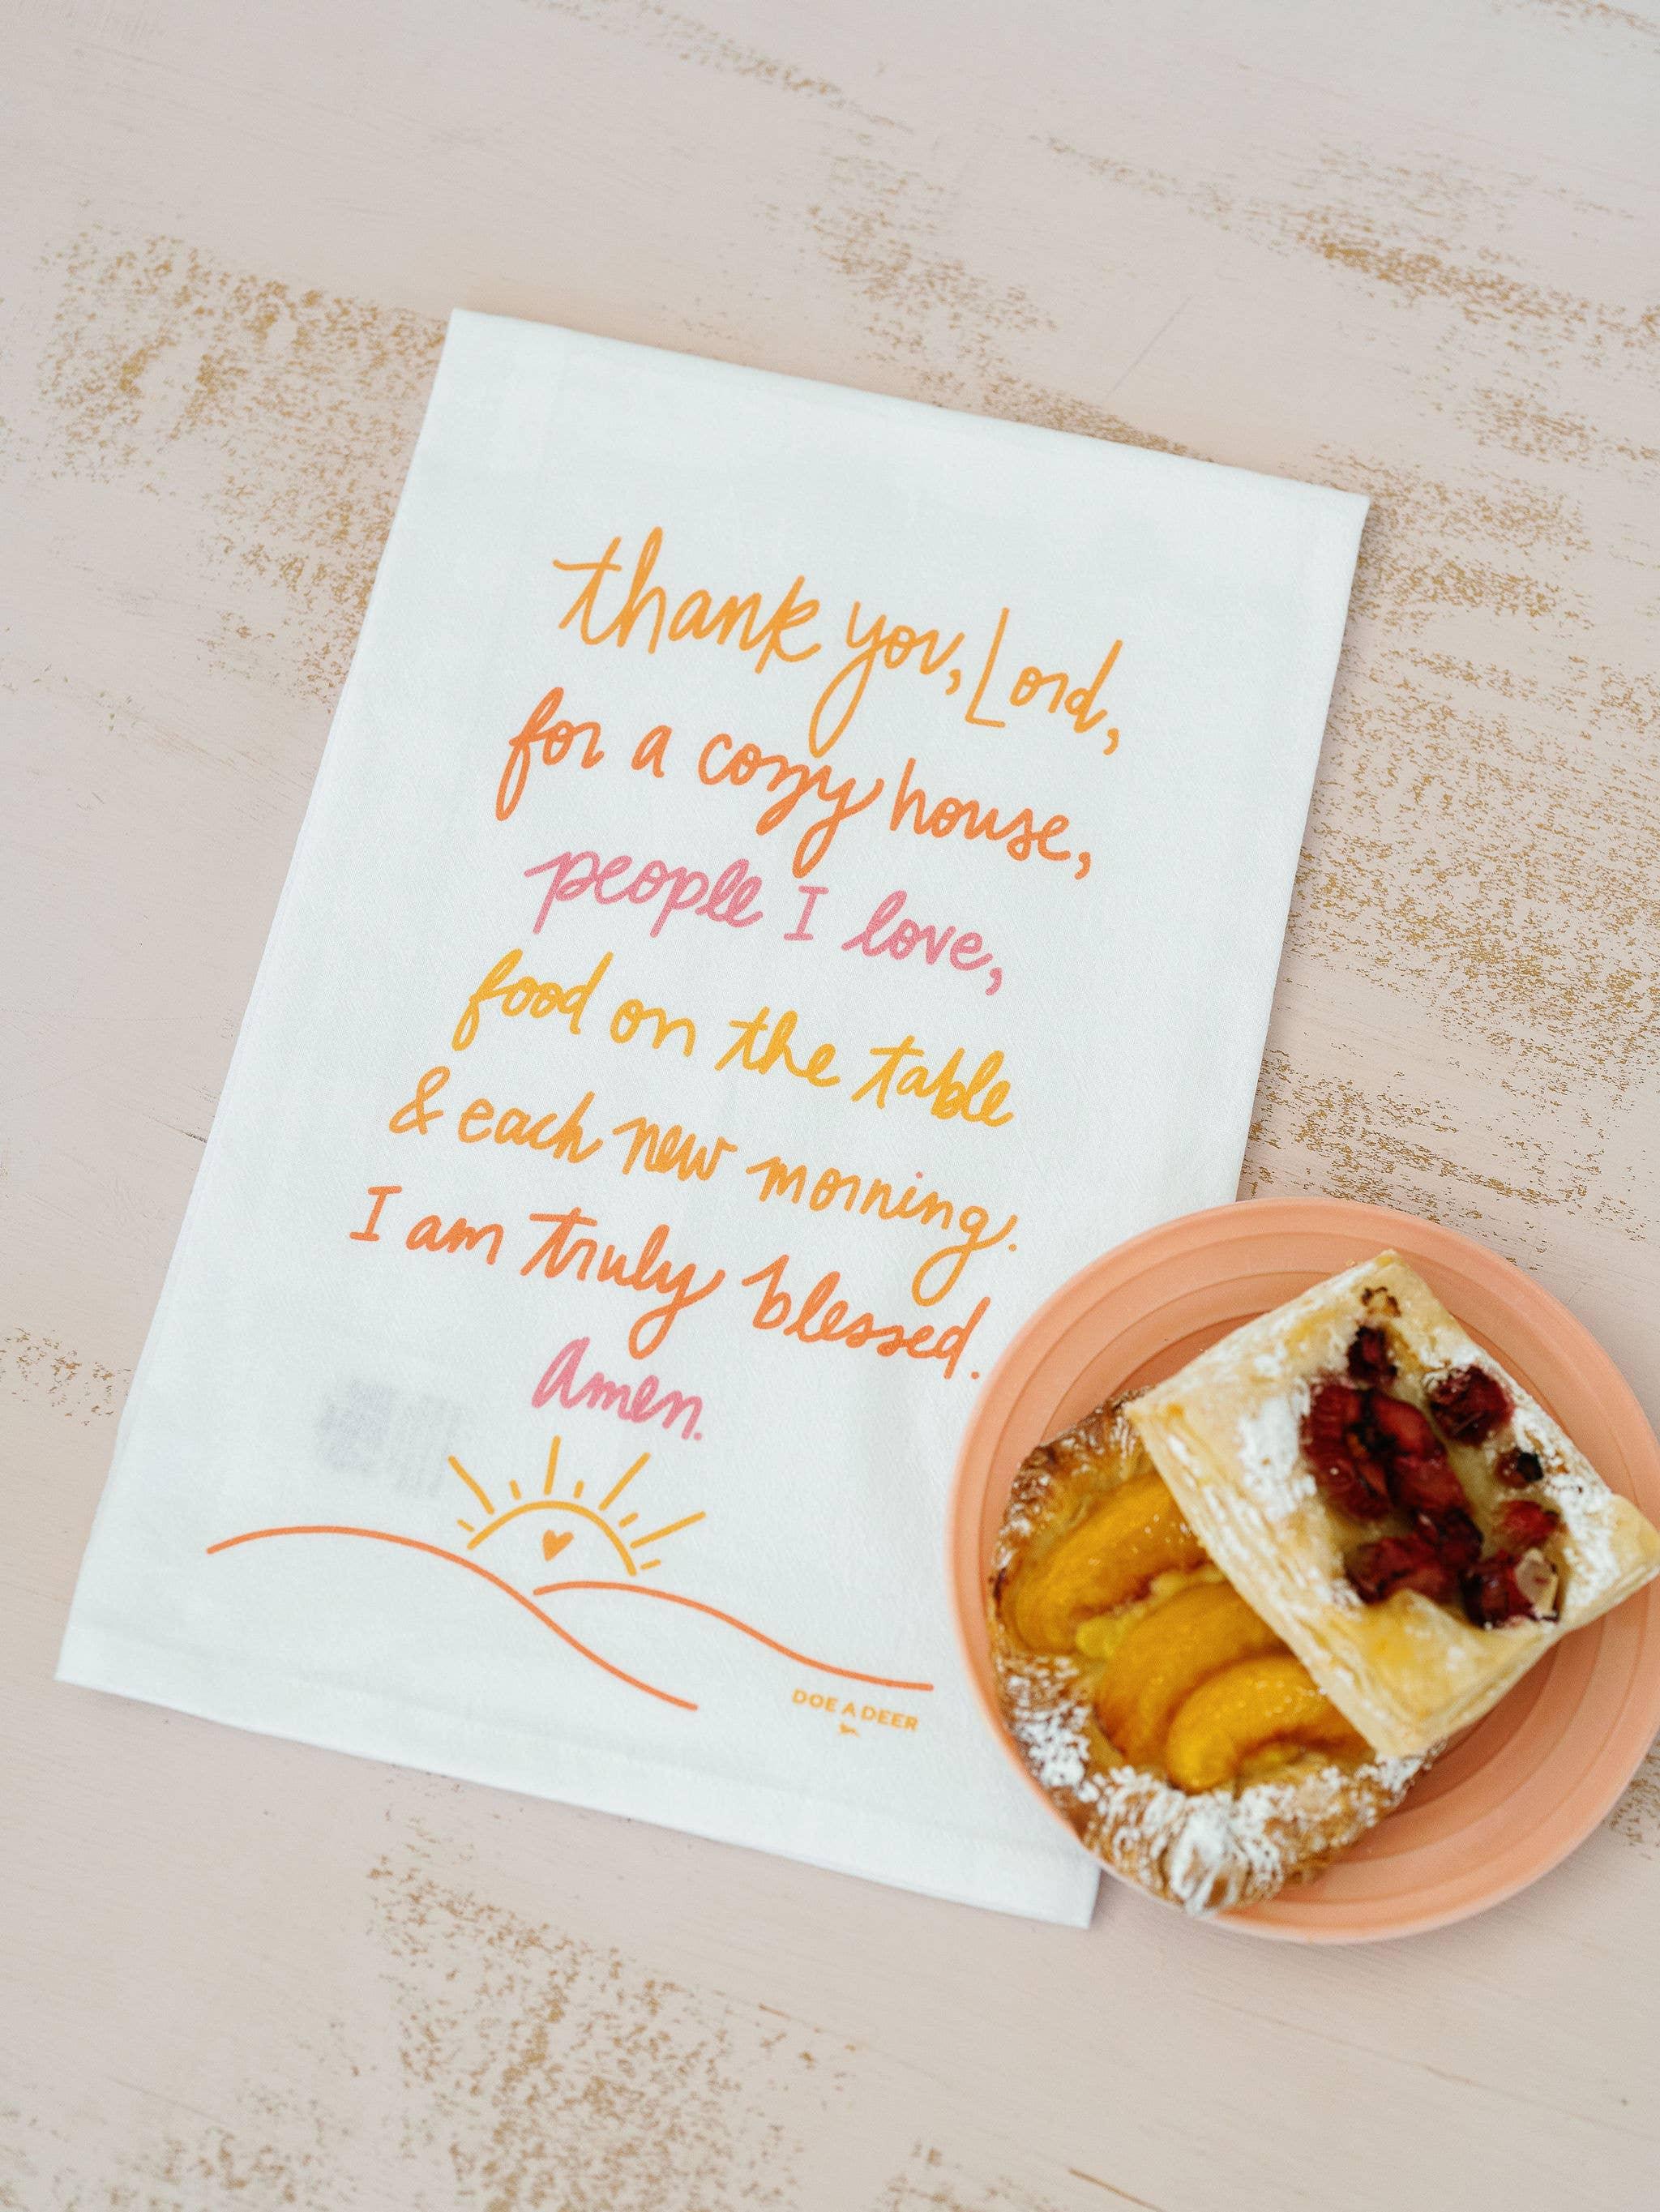 thank you, Lord,
for a cozy house,
people I love,
food on the table
& each new morning.
I am truly blessed.
Amen.
DOE A DEER